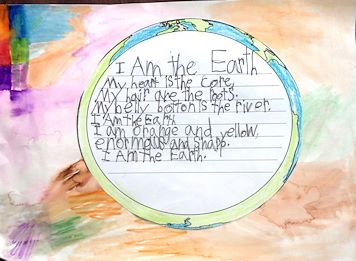 I Am the Earth
My heart is the core.
My hair are the roots.
My belly botton is the river.
I Am the Earth.
I am orange and yellow,
enormous and sharp.
I Am the Earth.